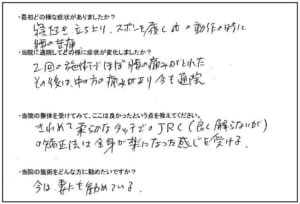 ・最初どの様な症状がありましたか？
寝起き、立ち上り、ズボンを履く などの動作の時に
腰の苦痛
・当院に通院してどの様に症状が変化しましたか？
2回の施術でほぼ腰の痛みがとれた
その後は、 の痛みがあり今も通院
・当院の整体を受けてみて、ここは良かったという点を教えてください。
きわめて柔らかなタッチのJRC(良く解らないが)
の矯正法は全身が楽になった感じを受ける。
・当院の施術をどんな方に勧めたいですか？
今は妻にも勧めている。